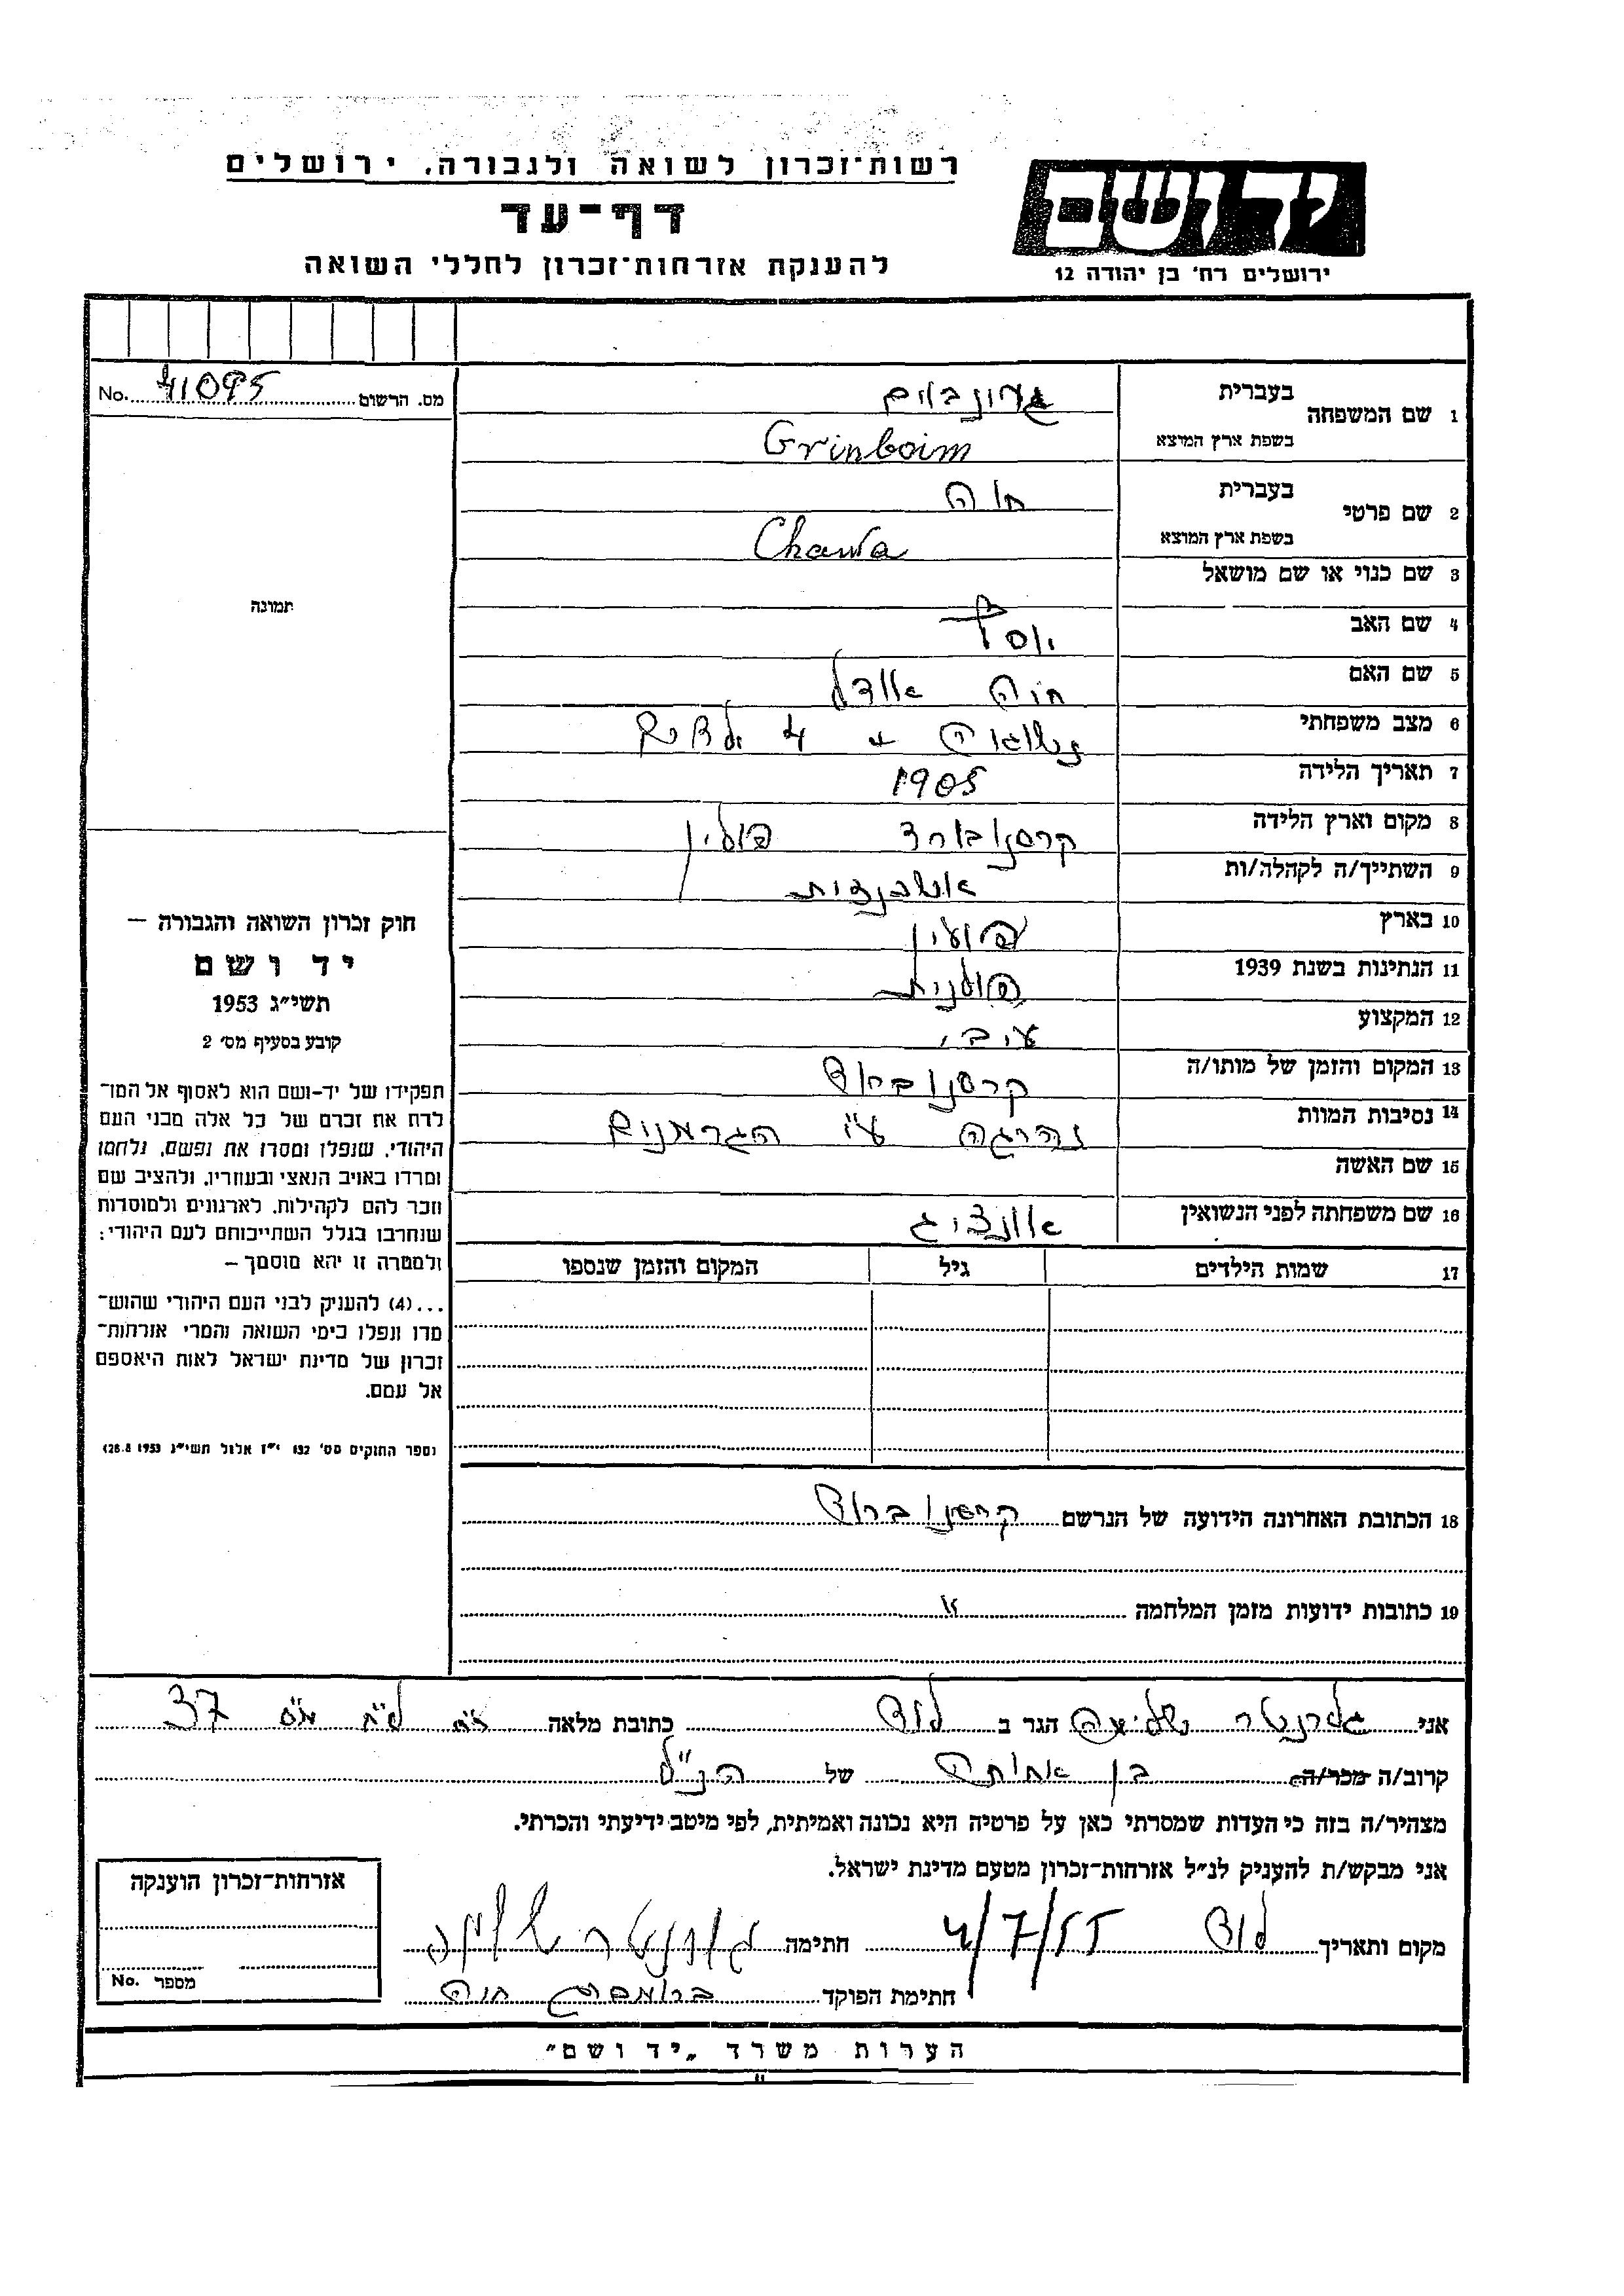 רשות־זכרון לשואה ולגבורה, ירושלים
דף־עד
להענקת אזרחות־זכרון לחללי השואה
יד ושם
ירושלים רח' בן יהודה 12
מס. הרשום 41095 No.
1 שם המשפחה
בעברית גרונבוים
בשפת ארץ המוצא Grinboim
2 שם פרטי
בעברית חוה
בשפת ארץ המוצא Chawa
3 שם כנוי או שם מושאל
4 שם האב יוסף
5 שם האם חיה אידל
6 מצב משפחתי נשואה + 4 ילדים
7 תאריך הלידה 1905
8 מקום וארץ הלידה פולין
9 השתייך/ה לקהלה/ות
10 בארץ פולין
11 הנתינות בשנת 1939 פולנית
12 המקצוע
13 המקום והזמן של מותו/ה קרסנוברוד
14 נסיבות המוות נהרגה ע"י הגרמנים
15 שם האשה
16 שם משפחתה לפני הנשואין
17 שמות הילדים גיל המקום והזמן שנספו
18 הכתובת האחרונה הידועה של הנרשם קרסנוברוד
19 כתובות ידועות מזמן המלחמה "
תמונה
חוק זכרון השואה והגבורה –
יד ושם
תשי"ג 1953
קובע בסעיף מס' 2
תפקידו של יד-ושם הוא לאסוף אל המו־
לדת את זכרם של כל אלה מבני העם
היהודי, שנפלו ומסרו את נפשם, נלחמו
ומרדו באויב הנאצי ובעוזריו, ולהציב שם
וזכר להם לקהילות, לארגונים ולמוסדות
שנחרבו בגלל השתייכותם לעם היהודי;
ולמטרה זו יהא מוסמך –
...(4) להעניק לבני העם היהודי שהוש־
מדו ונפלו בימי השואה והמרי אזרחות־
זכרון של מדינת ישראל לאות היאספם
אל עמם.
(ספר החוקים מס' 132 י"ז אלול תשי"ג 28.8.1953)
אני הגר ב לוד כתובת מלאה מס 37
קרוב/ה מכר/ה בן אחותה של הנ"ל
מצהיר/ה בזה כי העדות שמסרתי כאן על פרטיה היא נכונה ואמיתית, לפי מיטב ידיעתי והכרתי.
אני מבקש/ת להעניק לנ"ל אזרחות־זכרון מטעם מדינת ישראל.
מקום ותאריך לוד 4/7/55 חתימה
חתימת הפוקד ברומברג חוה
אזרחות־זכרון הוענקה
מספר No.
הערות משרד „יד ושם"